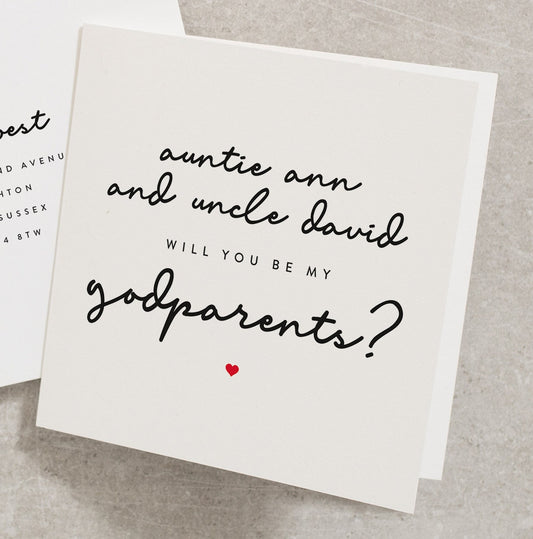 auntie ann
and uncle david
WILL YOU BE MY
godparents?
HTON
SUSSEX
4 8TW